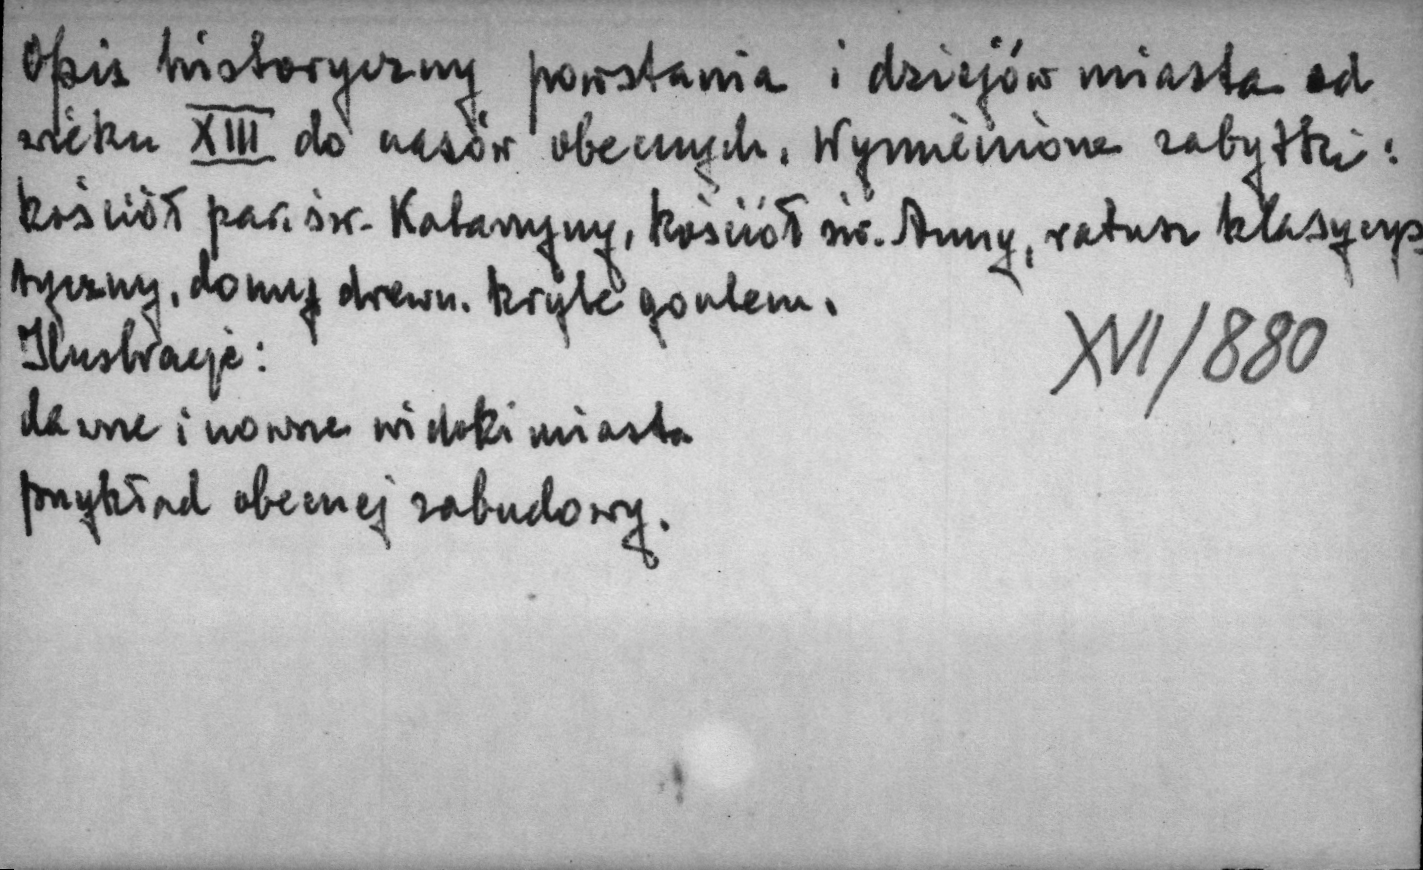 Opis historyczny powstania i dziejów miasta od
wieku XIII do czasów obecnych. Wymienione zabytki:
kościół par. św. Katarzyny, kościół św. Anny, ratusz klasycys
tyczny, domy drewn. kryte gontem.
XVI/880
Ilustracje:
dawne i nowsze widoki miasta
przykład obecnej zabudowy.